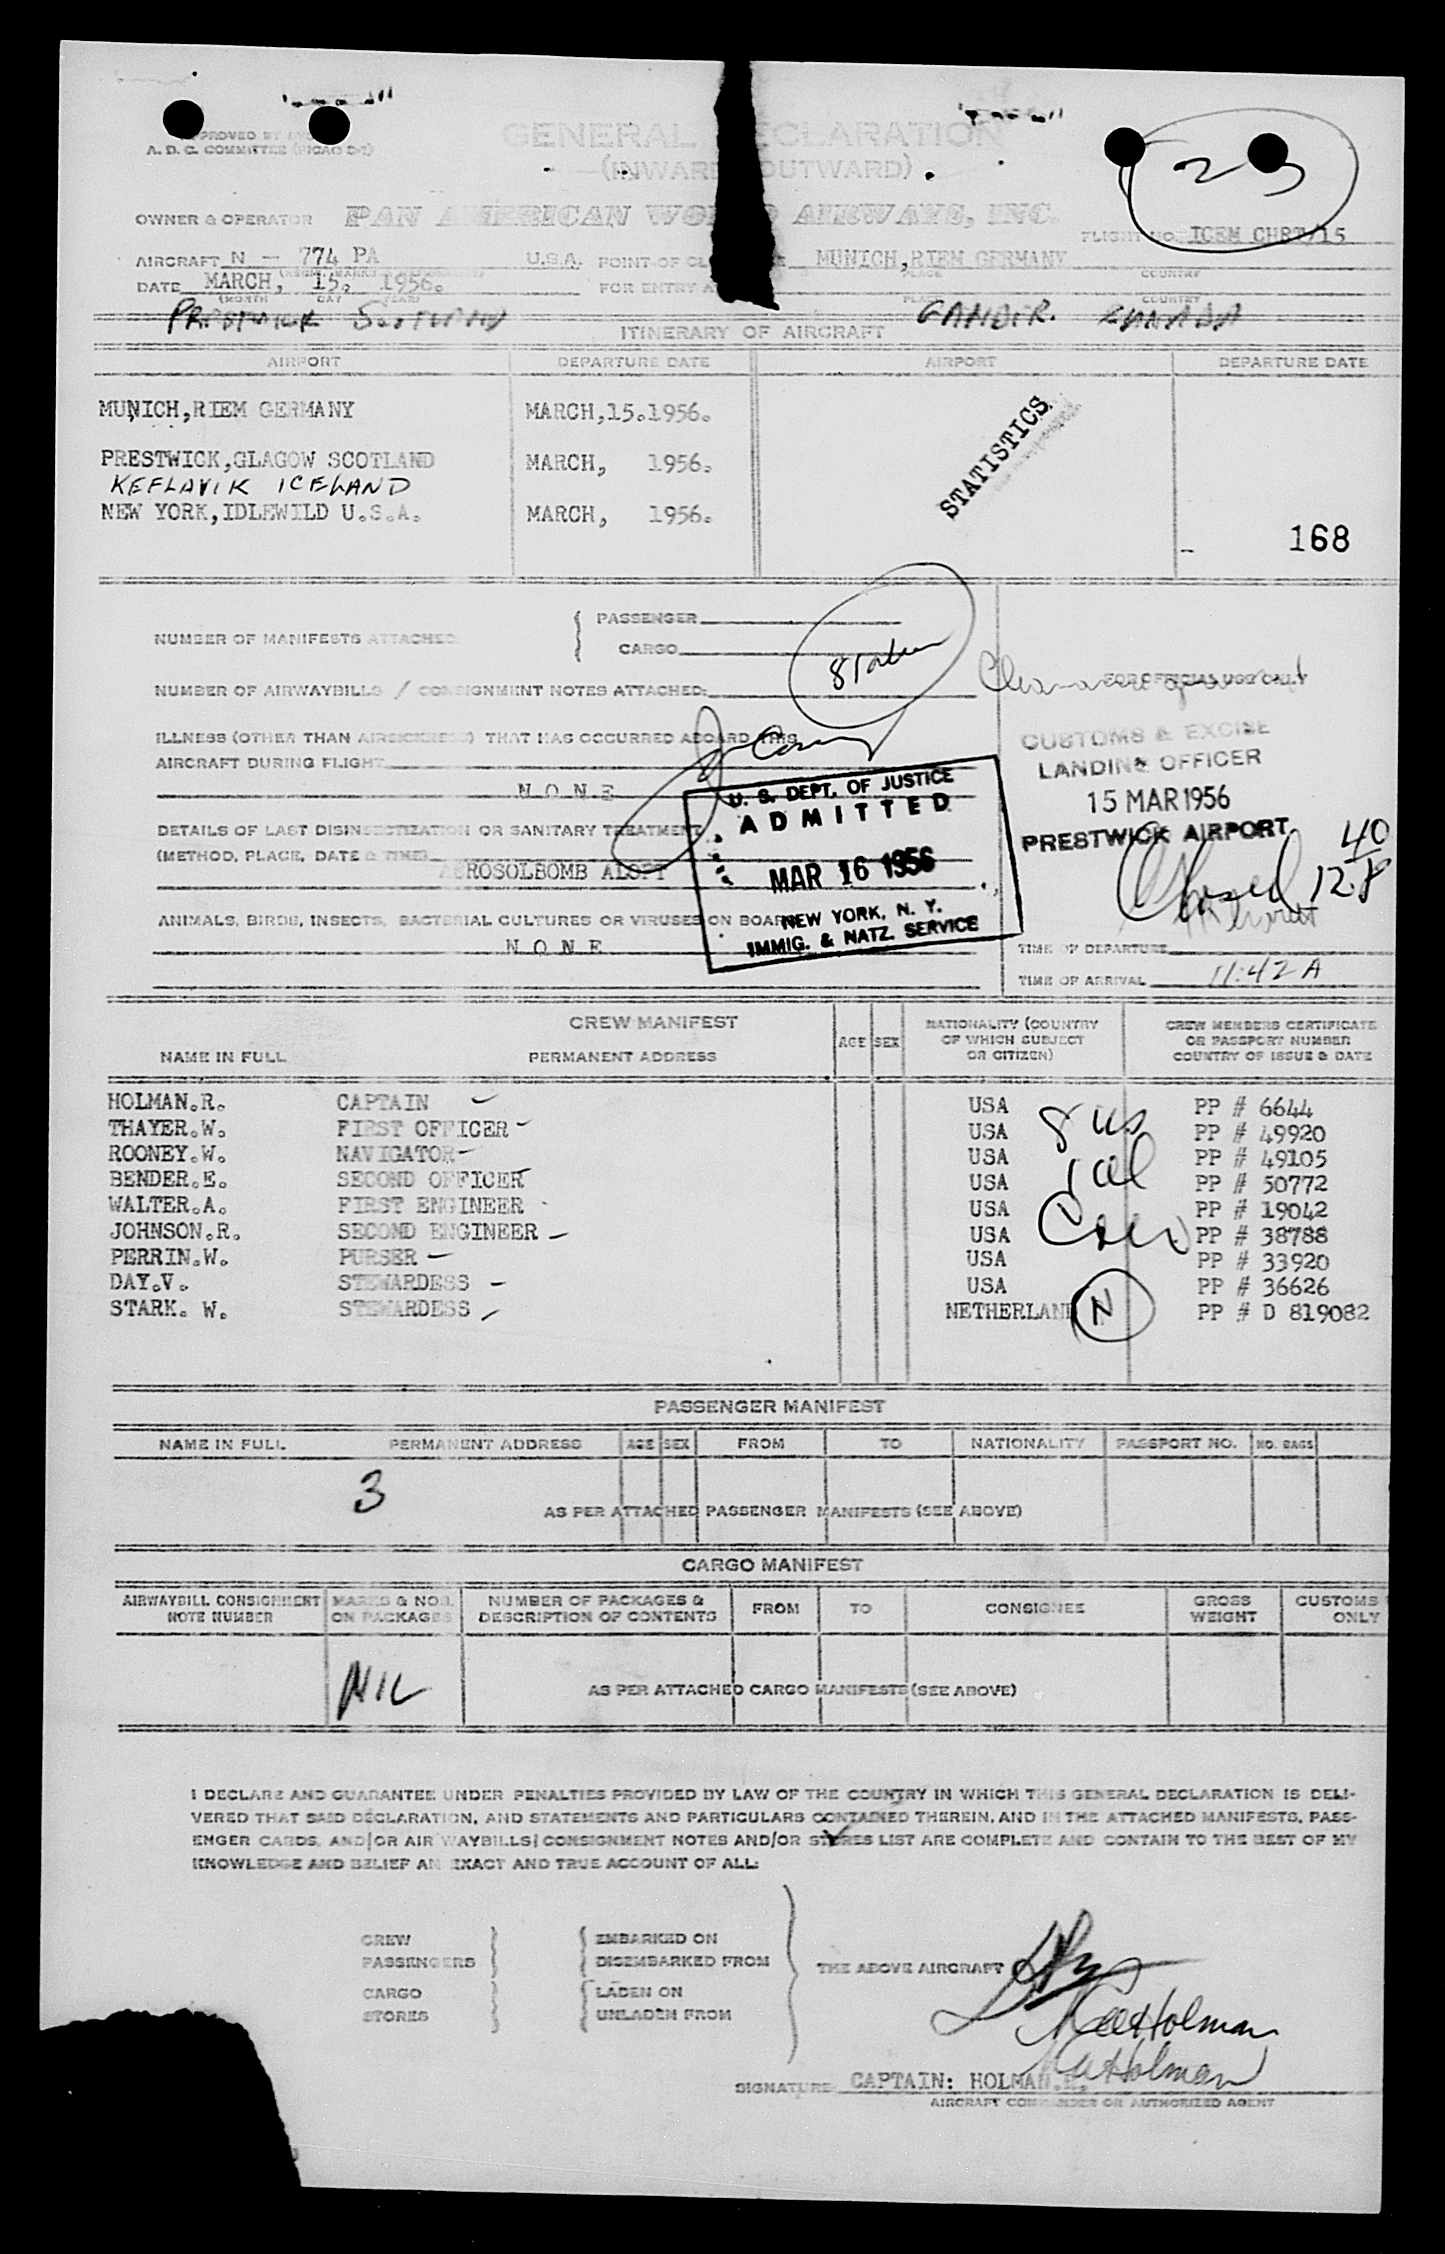 APPROVED BY
A. D. C. COMMITTEE (PICAO D-1)
GENERAL DECLARATION
(INWARD OUTWARD)
23
OWNER & OPERATOR PAN AMERICAN WORLD AIRWAYS, INC.
FLIGHT NO. ICEM CHRT/15
AIRCRAFT N - 774 PA U.S.A. POINT OF CLEARANCE MUNICH,RIEM GERMANY
PLACE COUNTRY
DATE MARCH, 15. 1956. FOR ENTRY A
(MONTH DAY YEAR) PLACE COUNTRY
PRESTWICK SCOTLAND GANDER. CANADA
ITINERARY OF AIRCRAFT
AIRPORT DEPARTURE DATE AIRPORT DEPARTURE DATE
MUNICH,RIEM GERMANY MARCH,15.1956.
STATISTICS
PRESTWICK,GLAGOW SCOTLAND MARCH, 1956.
KEFLAVIK ICELAND
NEW YORK,IDLEWILD U.S.A. MARCH, 1956.
168
NUMBER OF MANIFESTS ATTACHED PASSENGER
CARGO
NUMBER OF AIRWAYBILLS / CONSIGNMENT NOTES ATTACHED:
FOR OFFICIAL USE ONLY
ILLNESS (OTHER THAN AIRSICKNESS) THAT HAS OCCURRED ABOARD THIS
AIRCRAFT DURING FLIGHT
N O N E
CUSTOMS & EXCISE
LANDING OFFICER
15 MAR 1956
PRESTWICK AIRPORT
U. S. DEPT. OF JUSTICE
ADMITTED
MAR 16 1956
NEW YORK, N. Y.
IMMIG. & NATZ. SERVICE
DETAILS OF LAST DISINSECTIZATION OR SANITARY TREATMENT
(METHOD, PLACE, DATE & TIME)
AEROSOLBOMB ALOFT
40
128
ANIMALS, BIRDS, INSECTS, BACTERIAL CULTURES OR VIRUSES ON BOARD
N O N E
TIME OF DEPARTURE
TIME OF ARRIVAL 11:42 A
CREW MANIFEST
NAME IN FULL PERMANENT ADDRESS AGE SEX NATIONALITY (COUNTRY OF WHICH SUBJECT OR CITIZEN) CREW MEMBERS CERTIFICATE OR PASSPORT NUMBER COUNTRY OF ISSUE & DATE
HOLMAN.R. CAPTAIN USA PP # 6644
THAYER.W. FIRST OFFICER USA PP # 49920
ROONEY.W. NAVIGATOR USA PP # 49105
BENDER.E. SECOND OFFICER USA PP # 50772
WALTER.A. FIRST ENGINEER USA PP # 19042
JOHNSON.R. SECOND ENGINEER USA PP # 38788
PERRIN.W. PURSER USA PP # 33920
DAY.V. STEWARDESS USA PP # 36626
STARK. W. STEWARDESS NETHERLAND N PP # D 819082
8 US
1 al
Crew
PASSENGER MANIFEST
NAME IN FULL PERMANENT ADDRESS AGE SEX FROM TO NATIONALITY PASSPORT NO. NO. BAGS
3
AS PER ATTACHED PASSENGER MANIFESTS (SEE ABOVE)
CARGO MANIFEST
AIRWAYBILL CONSIGNMENT NOTE NUMBER MARKS & NOS. ON PACKAGES NUMBER OF PACKAGES & DESCRIPTION OF CONTENTS FROM TO CONSIGNEE GROSS WEIGHT CUSTOMS ONLY
NIL
AS PER ATTACHED CARGO MANIFESTS (SEE ABOVE)
I DECLARE AND GUARANTEE UNDER PENALTIES PROVIDED BY LAW OF THE COUNTRY IN WHICH THIS GENERAL DECLARATION IS DELI-
VERED THAT SAID DECLARATION, AND STATEMENTS AND PARTICULARS CONTAINED THEREIN, AND IN THE ATTACHED MANIFESTS, PASS-
ENGER CARDS, AND/OR AIR WAYBILLS/CONSIGNMENT NOTES AND/OR STORES LIST ARE COMPLETE AND CONTAIN TO THE BEST OF MY
KNOWLEDGE AND BELIEF AN EXACT AND TRUE ACCOUNT OF ALL:
CREW EMBARKED ON
PASSENGERS DISEMBARKED FROM THE ABOVE AIRCRAFT
CARGO LADEN ON
STORES UNLADEN FROM
Holman
Holman
SIGNATURE: CAPTAIN: HOLMAN.R.
AIRCRAFT COMMANDER OR AUTHORIZED AGENT